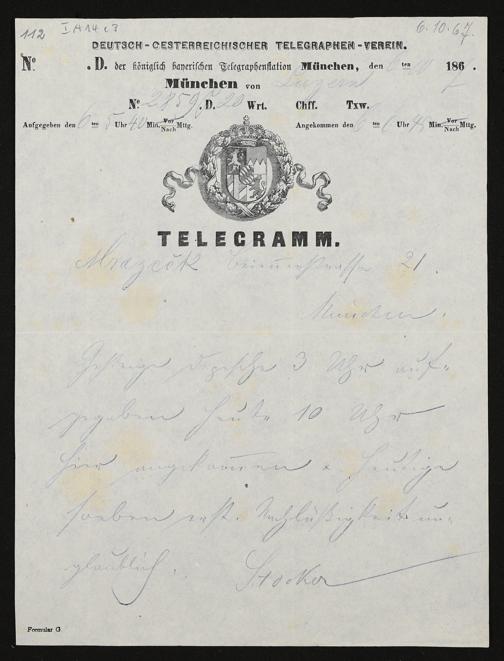 112 I A 14 c 7 6.10.67
DEUTSCH-OESTERREICHISCHER TELEGRAPHEN-VEREIN.
Nº .D. der königlich bayerischen Telegraphenstation München, den 6 ten 10 186 7.
München von Luzern
Nº 2859 .D. 20 Wrt. Chff. Txw.
Aufgegeben den 6 ten 5 Uhr 40 Min. Vor/Nach Mttg. Angekommen den 6 ten 6 Uhr Min. Vor/Nach Mttg.
TELEGRAMM.
Mrazeck Briennerstrasse 21.
München.
Gestrige Depesche 3 Uhr auf-
gegeben heute 10 Uhr
hier angekommen & heutige
soeben erst. Nachläßigkeit un-
glaublich. Stocker
Formular G.